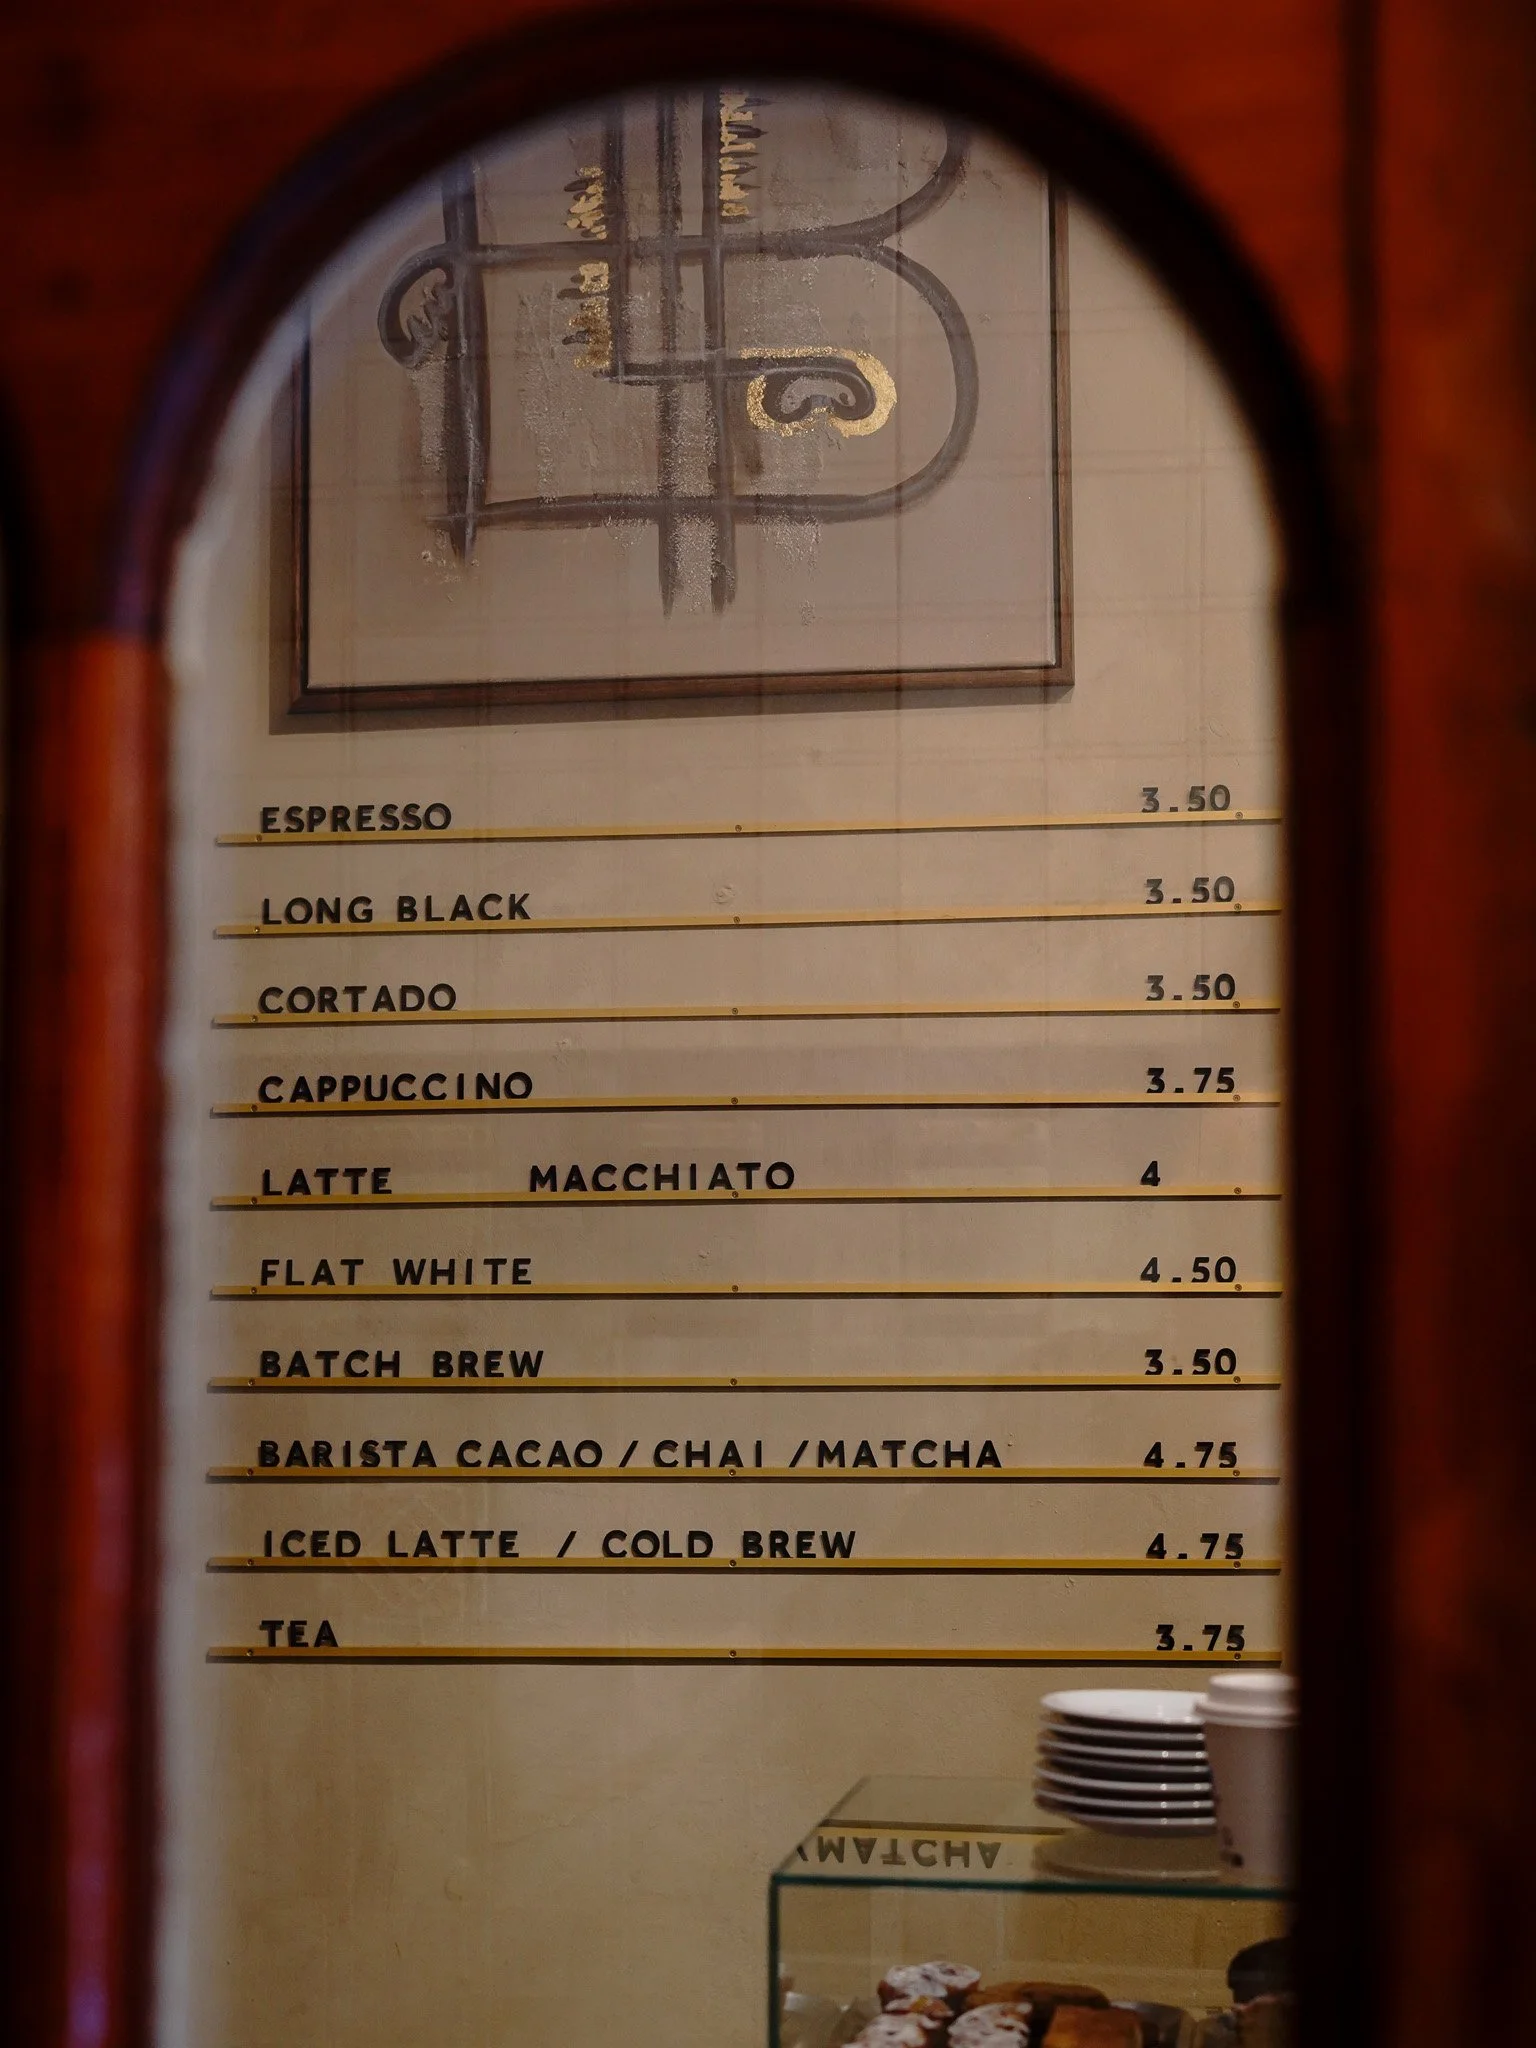 ESPRESSO 3.50
LONG BLACK 3.50
CORTADO 3.50
CAPPUCCINO 3.75
LATTE MACCHIATO 4
FLAT WHITE 4.50
BATCH BREW 3.50
BARISTA CACAO / CHAI / MATCHA 4.75
ICED LATTE / COLD BREW 4.75
TEA 3.75
/MATCHA